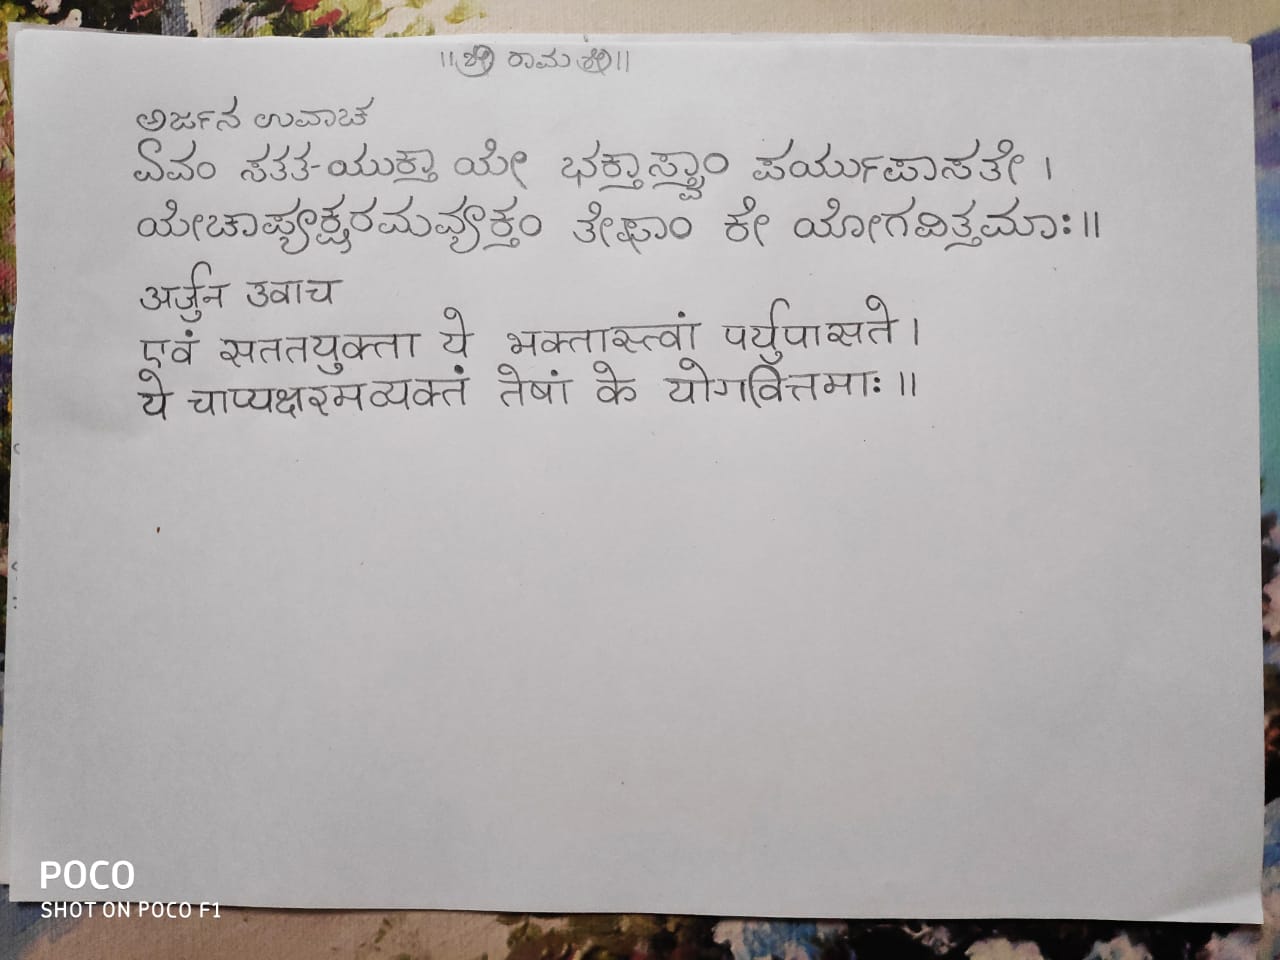 ||ಶ್ರೀ ರಾಮ ಶ್ರೀ||
ಅರ್ಜನ ಉವಾಚ
ಏವಂ ಸತತ-ಯುಕ್ತಾ ಯೇ ಭಕ್ತಾಸ್ತ್ವಾಂ ಪರ್ಯುಪಾಸತೇ ।
ಯೇಚಾಪ್ಯಕ್ಷರಮವ್ಯಕ್ತಂ ತೇಷಾಂ ಕೇ ಯೋಗವಿತ್ತಮಾಃ॥
अर्जुन उवाच
एवं सततयुक्ता ये भक्तास्त्वां पर्युपासते।
ये चाप्यक्षरमव्यक्तं तेषां के योगवित्तमाः॥
POCO
SHOT ON POCO F1